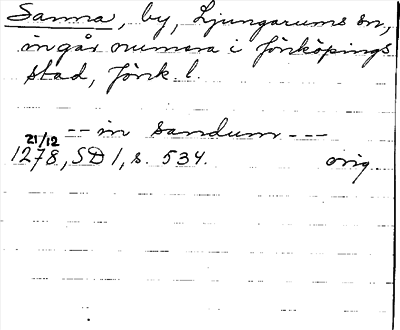 Sanna, by, Ljungarums sn,
ingår numera i Jönköpings
stad, Jönk. l.
-- in sandum ---
21/12
1278, SD 1, s. 534. orig